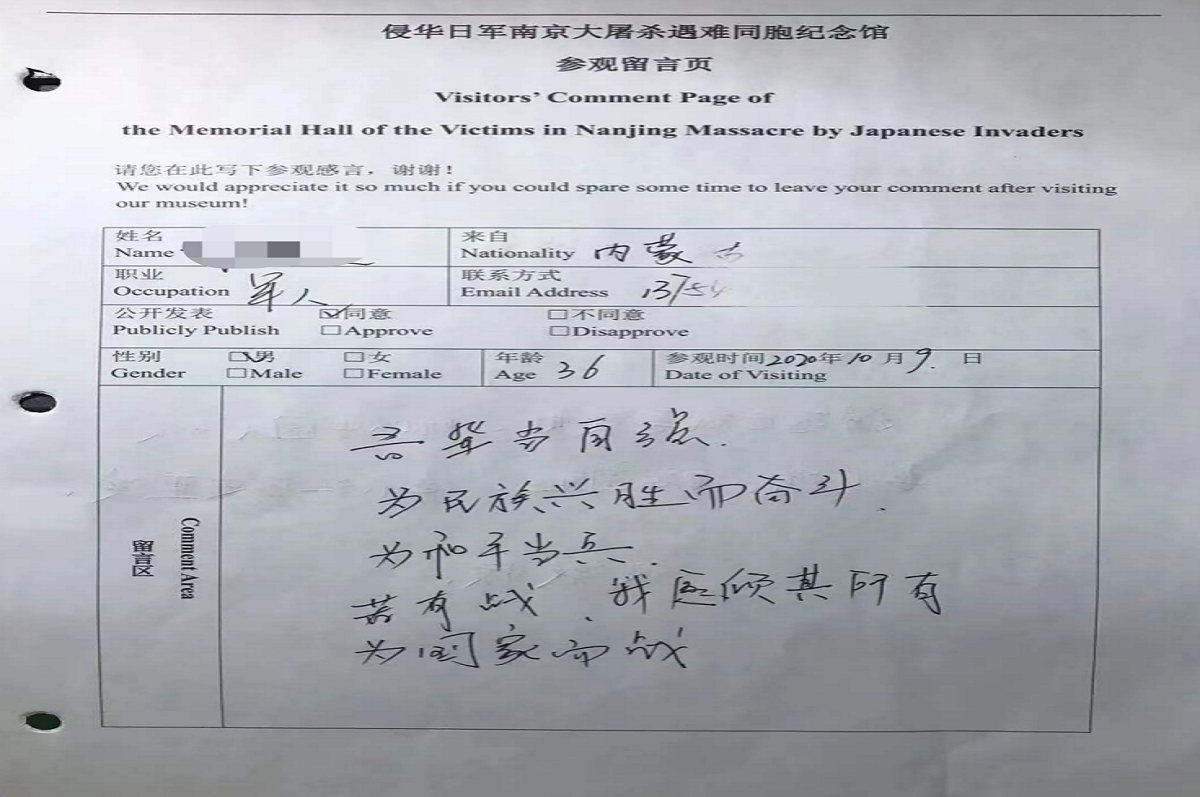 侵华日军南京大屠杀遇难同胞纪念馆
参观留言页
Visitors' Comment Page of
the Memorial Hall of the Victims in Nanjing Massacre by Japanese Invaders
请您在此写下参观感言，谢谢！
We would appreciate it so much if you could spare some time to leave your comment after visiting
our museum!
姓名 来自
Name Nationality 内蒙古
职业 联系方式
Occupation 军人 Email Address 13154
公开发表 ☑同意 □不同意
Publicly Publish □Approve □Disapprove
性别 ☑男 □女 年龄 参观时间2020年10月9日
Gender □Male □Female Age 36 Date of Visiting
留言区 Comment Area
吾辈当自强.
为民族兴胜而奋斗.
为和平当兵.
若有战.我愿倾其所有
为国家而战